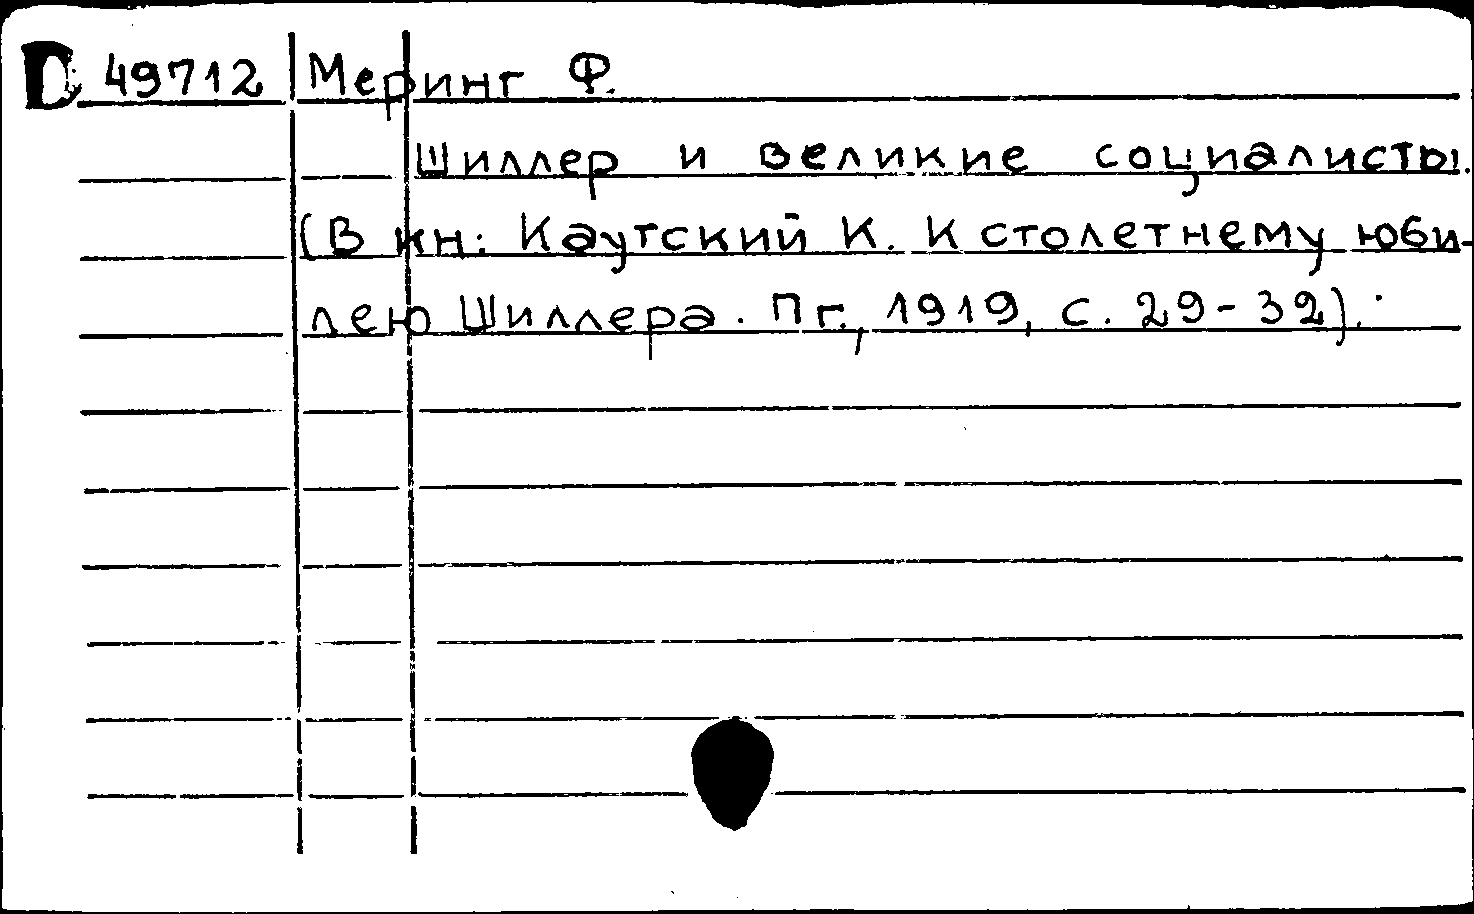 D 49712 Меринг Ф.
Шиллер и великие социалисты.
(В кн: Каутский К. К столетнему юби-
лею Шиллера. Пг., 1919, с. 29-32).